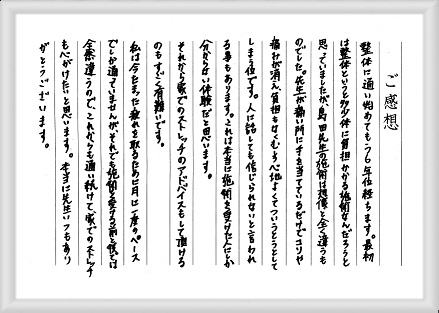 ご感想
整体に通い始めてもう6年位経ちます。最初
は整体というと多少体に負担かかる施術なんだろうと
思っていましたが島田先生の施術は想像と全く違うも
のでした。先生が痛い所に手を当てているだけでコリや
痛みが消え、負担もなくむしろ心地よくてついうとうとして
しまう位です。人に話しても信じられないと言われ
る事もあります。これは本当に施術を受けた人にしか
分からない体験だと思います。
それから家でのストレッチのアドバイスもして頂ける
のもすごく有難いです。
私は今たまった疲れを取るため月に一度のペース
でしか通っていませんがそれでも施術を受ける前と後では
全然違うので、これからも通い続けて家でのストレッチ
も心がけたいと思います。本当に先生いつもあり
がとうございます。